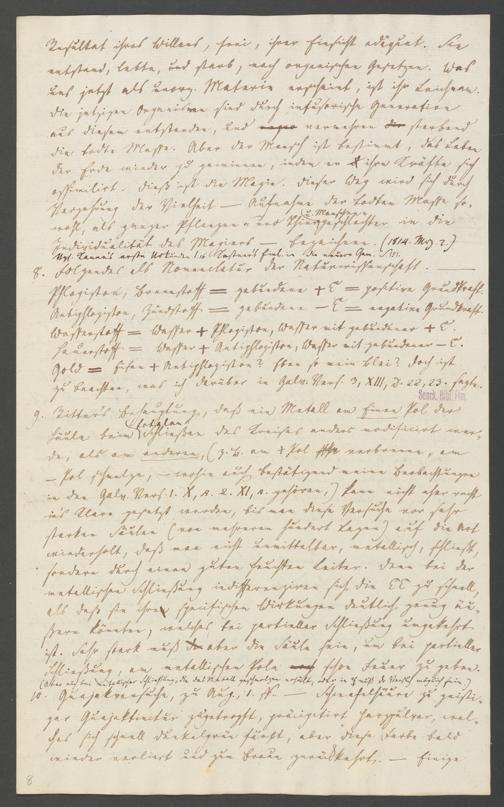 Resultat ihres Willens, frei, ihrer Einsicht adäquat. Sie
entstand, lebte, und starb, nach organischen Gesetzen. Was
uns jetzt als unorg. Materie erscheint, ist ihr Leichnam.
Die jetzigen Organismen sind durch infusorische Generation
aus diesem entstanden, und vermehren sterbend
die todte Masse. Aber der Mensch ist bestimmt, das Leben
der Erde wieder zu gewinnen, indem er ihre Kräfte sich
assimilirt. Dieß ist die Magie. Dieser Weg wird sich durch
Vergehung der Vielheit — Aufnahme der todten Masse so-
wohl, als ganzer Pflanzen- und Thiergeschlechter in die
u. Menschen
Individualität des Magiers — bezeichnen. (1814. Mrz. 2.)
8. Folgendes als Nomenclatur der Naturwissenschaft.
Phlogiston, Brennstoff = gebundene + E = positive Grundkraft.
Antiphlogiston, Zündstoff = gebundene – E = negative Grundkraft.
Wasserstoff = Wasser + Phlogiston, Wasser mit gebundener + E.
Sauerstoff = Wasser + Antiphlogiston, Wasser mit gebundener – E.
Gold = Eisen + Antiphlogiston? Eben so mein Blei? Doch ist
zu beachten, was ich darüber in Galv. Vers. 3, XIII, 22, 23. sagte.
Senck. Bibl. Ffm.
9. Ritter's Behauptung, daß ein Metall am Einen Pol der
Säule beim totalen Schließen des Kreises anders modificirt wer-
de, als am anderen, (z. B. am + Pol verbrenne, am
– Pol schmelze, — wohin auch bestätigend meine Beobachtungen
in den Galv. Vers. 1. X, 2. XI, gehören,) kann nicht eher recht
ins Klare gesetzt werden, bis man diese Versuche vor sehr
starken Säulen (von mehreren hundert Lagen) auf die Art
wiederholt, daß man nicht unmittelbar, metallisch, schließt,
sondern durch einen guten feuchten Leiter. Denn bei der
metallischen Schließung indifferenziren sich die EE zu schnell,
als daß sie ihre specifischen Wirkungen deutlich genug äu-
ßern könnten, welches bei partieller Schließung umgekehrt
ist. Sehr stark muß aber die Säule sein, um bei partieller
Schließung, am metallischen Pole schon Feuer zu geben.
10. Guajakversuche, zu Aug. 1. ff. — Schwefelsäure zu geisti-
ger Guajaktinctur zugetropft, präcipitirt Harzpulver, wel-
ches sich schnell dunkelgrün färbt, aber diese Farbe bald
wieder verliert und zum Braun zurückkehrt. — Einige
8